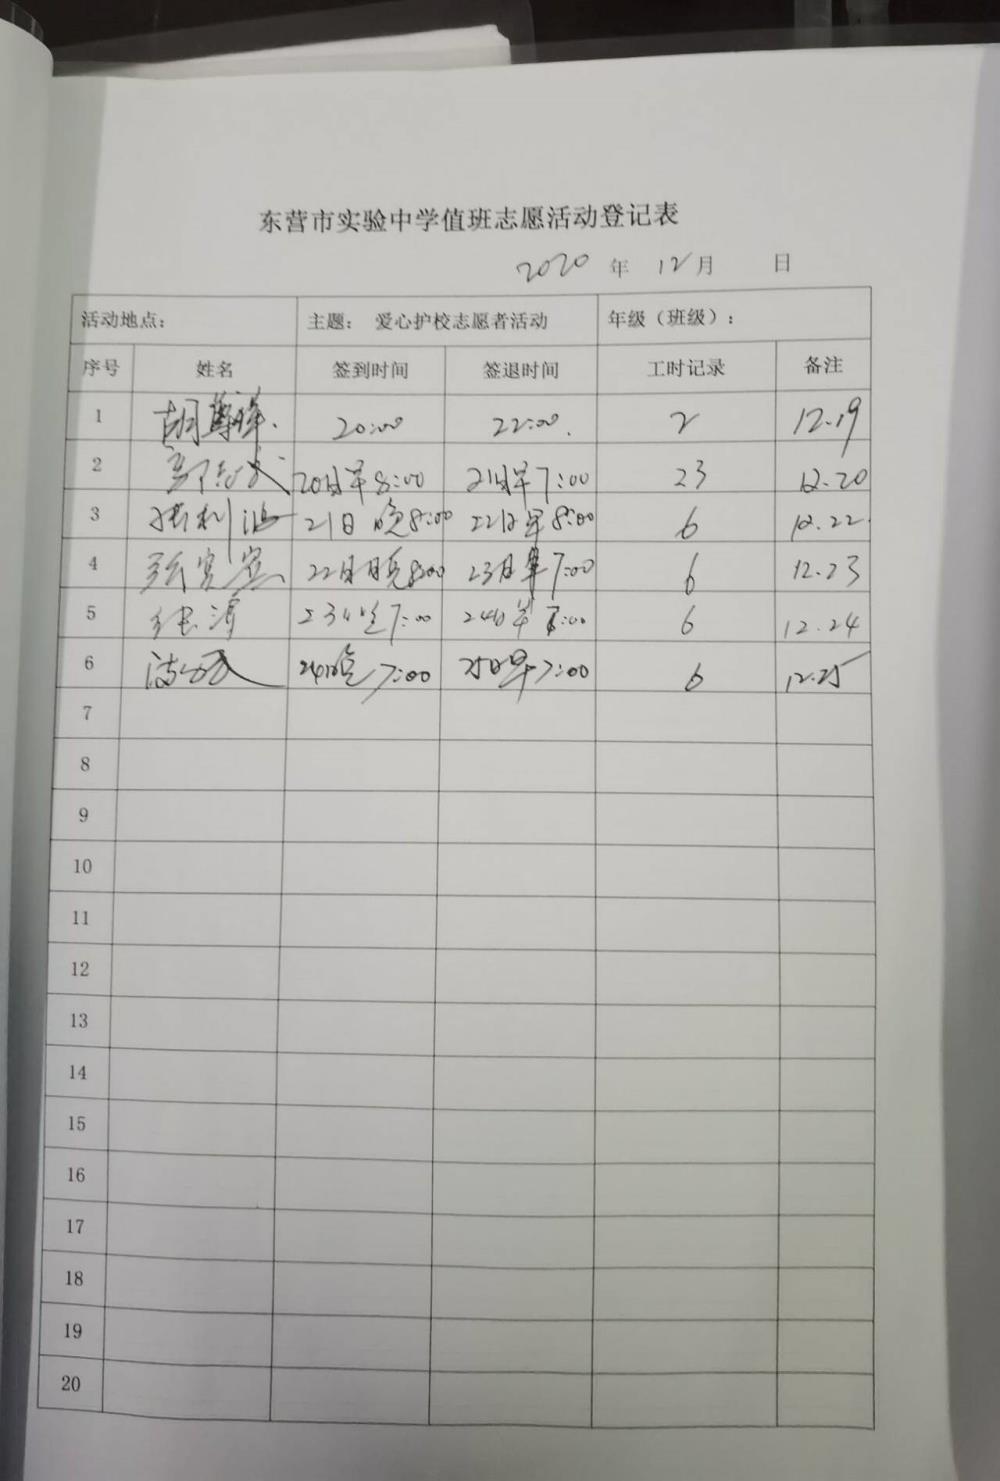 东营市实验中学值班志愿活动登记表
2020 年 12 月 日
活动地点： 主题： 爱心护校志愿者活动 年级（班级）：
序号 姓名 签到时间 签退时间 工时记录 备注
1 胡尊祥 20:00 22:00 2 12.19
2 20日早8:00 21日早7:00 23 12.20
3 张利 21日晚8:00 22日早8:00 6 12.22
4 22日晚8:00 23日早7:00 6 12.23
5 23日晚7:00 24日早7:00 6 12.24
6 24日晚7:00 25日早7:00 6 12.25
7
8
9
10
11
12
13
14
15
16
17
18
19
20